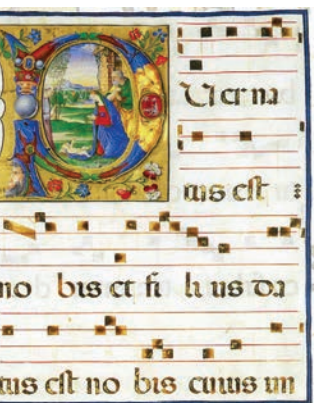 U er na
tus est
no bis et fi li us da
tus est no bis cuius im